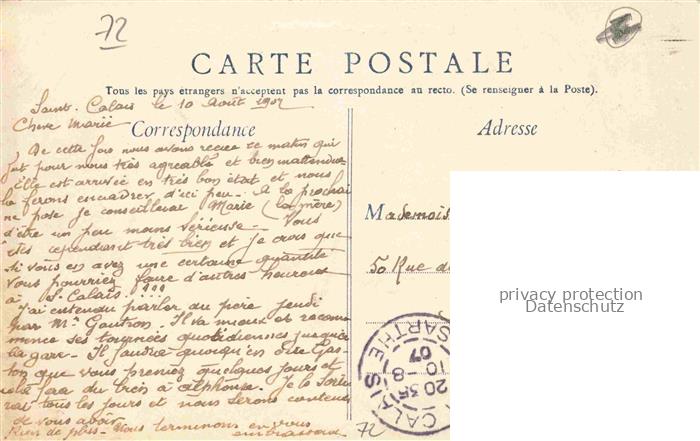 72
CARTE POSTALE
Tous les pays étrangers n'acceptent pas la correspondance au recto. (Se renseigner à la Poste).
Saint-Calais le 10 Août 1907
Chère Marie
Correspondance
Adresse
De cette fois nous avons reçue ce matin qui
fut pour nous très agréable et bien inattendue
Elle est arrivée en très bon état et nous
la ferons encadrer d'ici peu - A la prochai
ne pose je conseillerai Marie
d'être un peu moins sérieuse - Vous
êtes cependant très bien et je crois que
si vous en avez une certaine quantité
vous pourriez faire d'autres heureux
à St Calais !!!
J'ai entendu parler du père jeudi
par Mr Il va mieux et recom
mence ses tournées quotidiennes jusqu'à
la gare - Il faudra quoiqu'en dise Gas-
ton que vous preniez quelques jours et
cela fera du bien à Alphonse. Je
tous les jours et nous serons contents
de vous avoir
Rien de plus - Nous terminons en vous
embrassant
Mademois
50 Rue de
privacy protection
Datenschutz
CALAIS
SARTHE
20 35
10 - 8
07
72